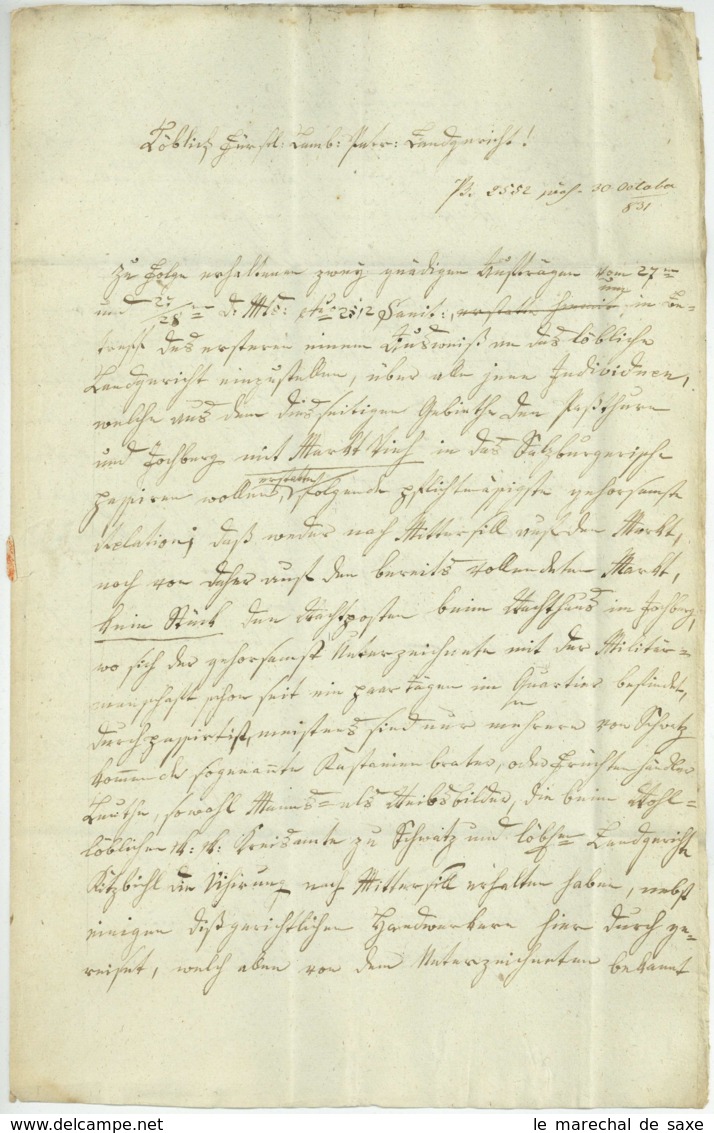 Löblich Fürstl: Lamb: Patr: Landgericht!
Pr. 2552 30 October
831
Zu Folge erhaltenen zwey gnädigen Aufträgen vom 27ten
und 27/28ten d. Mts: 2512 Sanit: erstatte hiemit, im Be-
treff des ersteren einem Ausweiß an das löbliche
Landgericht einzustellen, über alle jene Individuen,
welche aus dem diesseitigen Gebiethe den Paßthurn
und Jochberg mit Markt Vieh in das Salzburgerische
erstattet
passiren wollen, folgende pflichtmäsigste gehorsamste
Relation; daß weder nach Mittersill auf den Markt,
noch von daher auf den bereits vollendeten Markt,
kein Stück den Wachtposten beim Wachthaus im Jochberg,
wo sich der gehorsamst Unterzeichnete mit der Militär-
manschaft schon seit ein paar Tägen im Quartier befindet,
durchpassirt ist, meistens sind nur mehrere von Schwatz
kommende sogenannte Kastanien brater, oder Früchten händler
Leuthe, sowohl Manns- als Weibsbilder, die beim Wohl-
löblichen K: K: Kreisamte zu Schwatz und löbhen Landgericht
Kitzbichl die Visirung nach Mittersill erhalten haben, nebst
einigen dißgerichtlichen Handwerkern hier durch ge-
reiset, welch aber von dem Unterzeichneten bekannt
le marechal de saxe